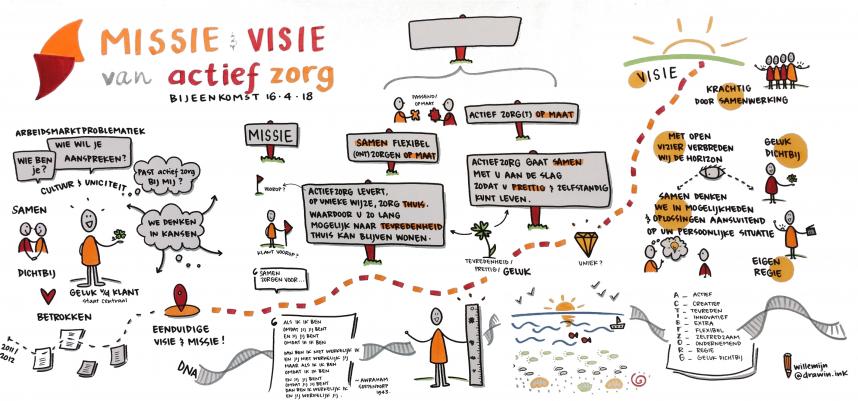 MISSIE & VISIE
van actief zorg
BIJEENKOMST 16·4·18
ARBEIDSMARKTPROBLEMATIEK
WIE BEN
je?
WIE WIL JE
AANSPREKEN?
CULTUUR & UNICITEIT
PAST actief zorg
BIJ MIJ?
WE DENKEN
IN KANSEN
SAMEN
DICHTBIJ
BETROKKEN
GELUK v/d KLANT
staat centraal
2011
2012
EENDUIDIGE
VISIE & MISSIE!
MISSIE
VOOROP?
KLANT VOOROP?
SAMEN
ZORGEN VOOR...
PASSEND/
OP MAAT
SAMEN FLEXIBEL
(ONT)ZORGEN OP MAAT
ACTIEFZORG LEVERT,
OP UNIEKE WIJZE, ZORG THUIS.
WAARDOOR U ZO LANG
MOGELIJK NAAR TEVREDENHEID
THUIS KAN BLIJVEN WONEN.
ACTIEF ZORG(T) OP MAAT
ACTIEFZORG GAAT SAMEN
MET U AAN DE SLAG
ZODAT U PRETTIG & ZELFSTANDIG
KUNT LEVEN.
TEVREDENHEID/
PRETTIG/ GELUK
UNIEK?
DNA
ALS IK IK BEN
OMDAT JIJ JIJ BENT
EN JIJ JIJ BENT
OMDAT IK IK BEN
DAN BEN IK NIET WERKELIJK IK
EN JIJ NIET WERKELIJK JIJ
MAAR ALS IK IK BEN
OMDAT IK IK BEN
EN JIJ JIJ BENT
OMDAT JIJ JIJ BENT
DAN BEN IK WERKELIJK IK
EN JIJ WERKELIJK JIJ
- AWRAHAM
SOETENDORP
1943.
VISIE
KRACHTIG
DOOR SAMENWERKING
MET OPEN
VIZIER VERBREDEN
WIJ DE HORIZON
GELUK
DICHTBIJ
SAMEN DENKEN
WE IN MOGELIJKHEDEN
& OPLOSSINGEN AANSLUITEND
OP UW PERSOONLIJKE SITUATIE
EIGEN
REGIE
A - ACTIEF
C - CREATIEF
T - TEVREDEN
I - INNOVATIEF
E - EXTRA
F - FLEXIBEL
Z - ZELFREDZAAM
O - ONDERNEMEND
R - REGIE
G - GELUK DICHTBIJ
willemijn
@drawin.ink